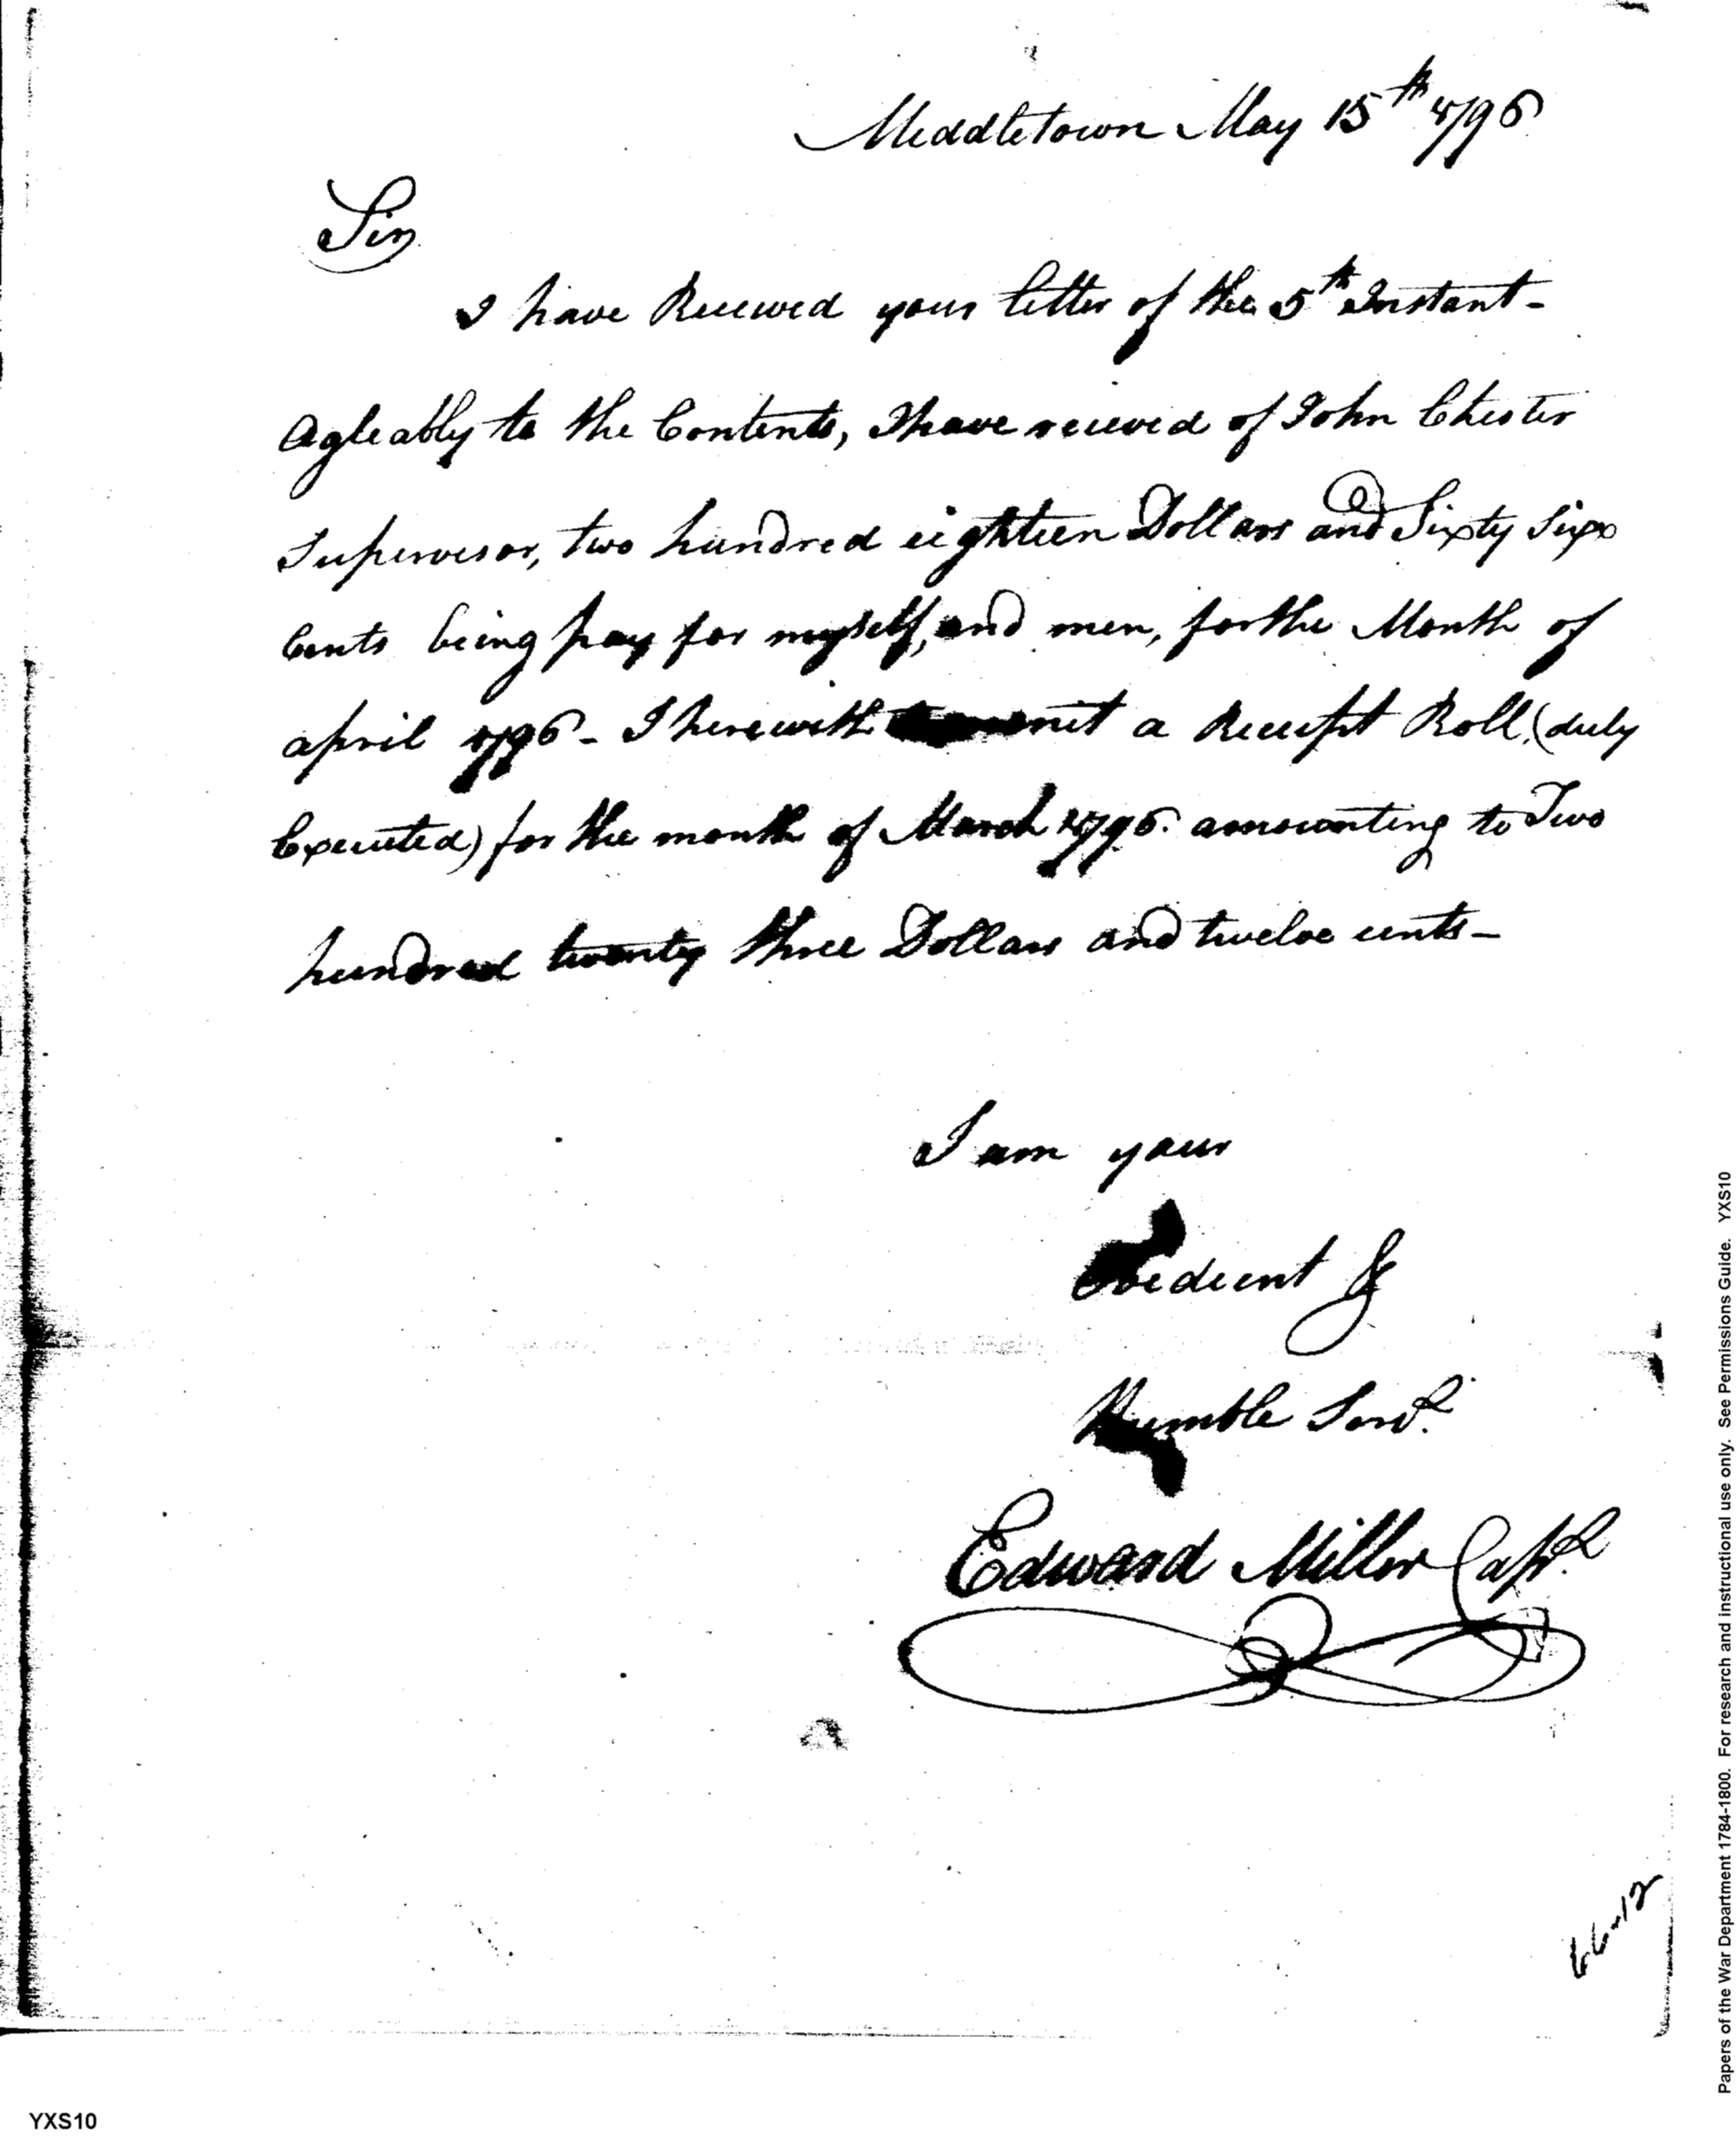 Middletown May 15th 1796
Sir
I have Received your letter of the 5th Instant-
Agleably to the Contents, I have recieved of John Chester
Supervisor, two hundred eighteen Dollars and Sixty Six
Cents being pay for myself, and men, for the Month of
april 1796 - I herewith a Receipt Roll, (duly
Executed) for the month of March 1796. amounting to Two
hundred twenty three Dollars and twelve cents-
I am your
Obedient &
Humble Servt.
Edward Miller Capt.
66-12
Papers of the War Department 1784-1800. For research and instructional use only. See Permissions Guide. YXS10
YXS10